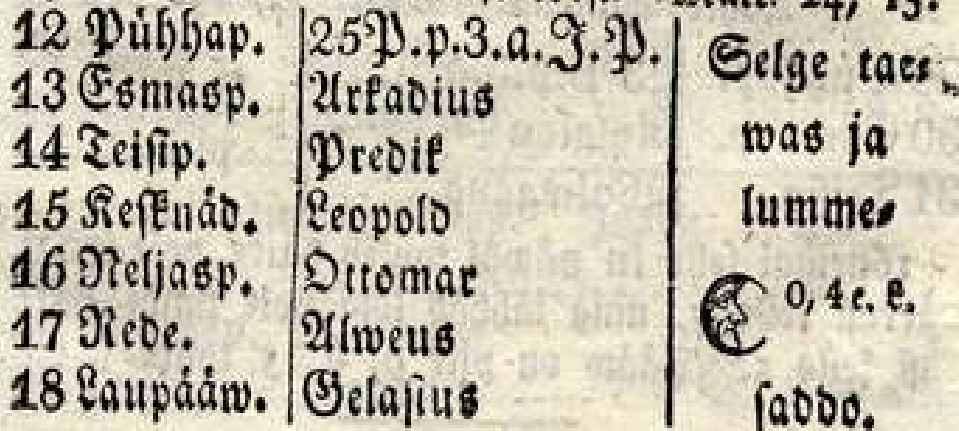 12 Pühhap. 25P.p.3.a.J.P.
13 Esmasp. Arkadius
14 Teisip. Predik
15 Kesknäd. Leopold
16 Neljasp. Ottomar
17 Rede. Alweus
18 Laupääw. Gelasius
24, 13.
Selge taer
was ja
lumme-
0, 4 e. l.
saddo.